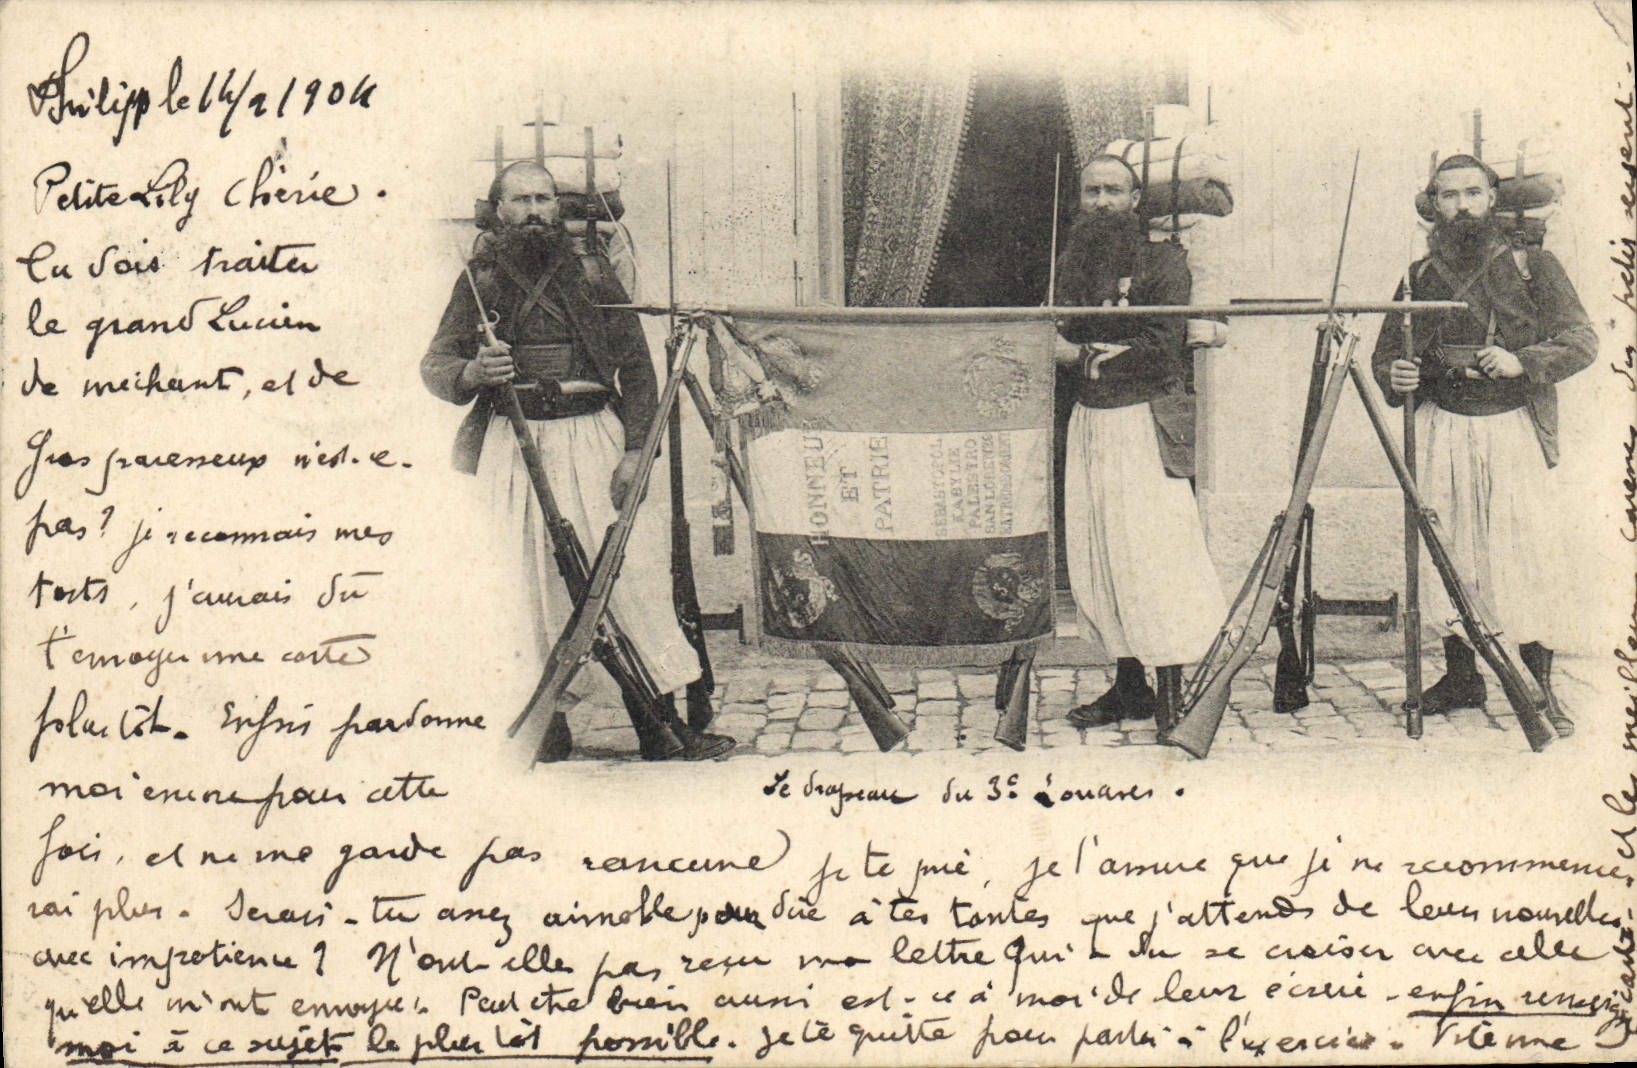 Philipp le 14/2/1904
Petite Lily Chérie.
Tu dois traiter
le grand Lucien
de mechant, et de
gros paresseux n'est-ce-
pas? je reconnais mes
torts, j'aurais dû
t'envoyer une carte
plus tôt. Enfin pardonne
moi encore pour cette
fois, et ne me garde pas rancune je te prie, je t'assure que je ne recommence
rai plus. Serais-tu assez aimable pour dire à tes tantes que j'attends de leurs nouvelles
avec impatience? N'ont-elles pas reçu ma lettre qui a du se croiser avec celle
qu'elles m'ont envoyée. Peut etre bien aussi est-ce à moi de leur écrire - enfin renseigne
moi à ce sujet le plus tôt possible. Je te quitte pour partir à l'exercice. Vite une
carte et les meilleures caresses du petit sergent.
Le drapeau du 3e Zouaves.
HONNEUR
ET
PATRIE
SEBASTOPOL
KABYLIE
PALESTRO
SAN LORENZO